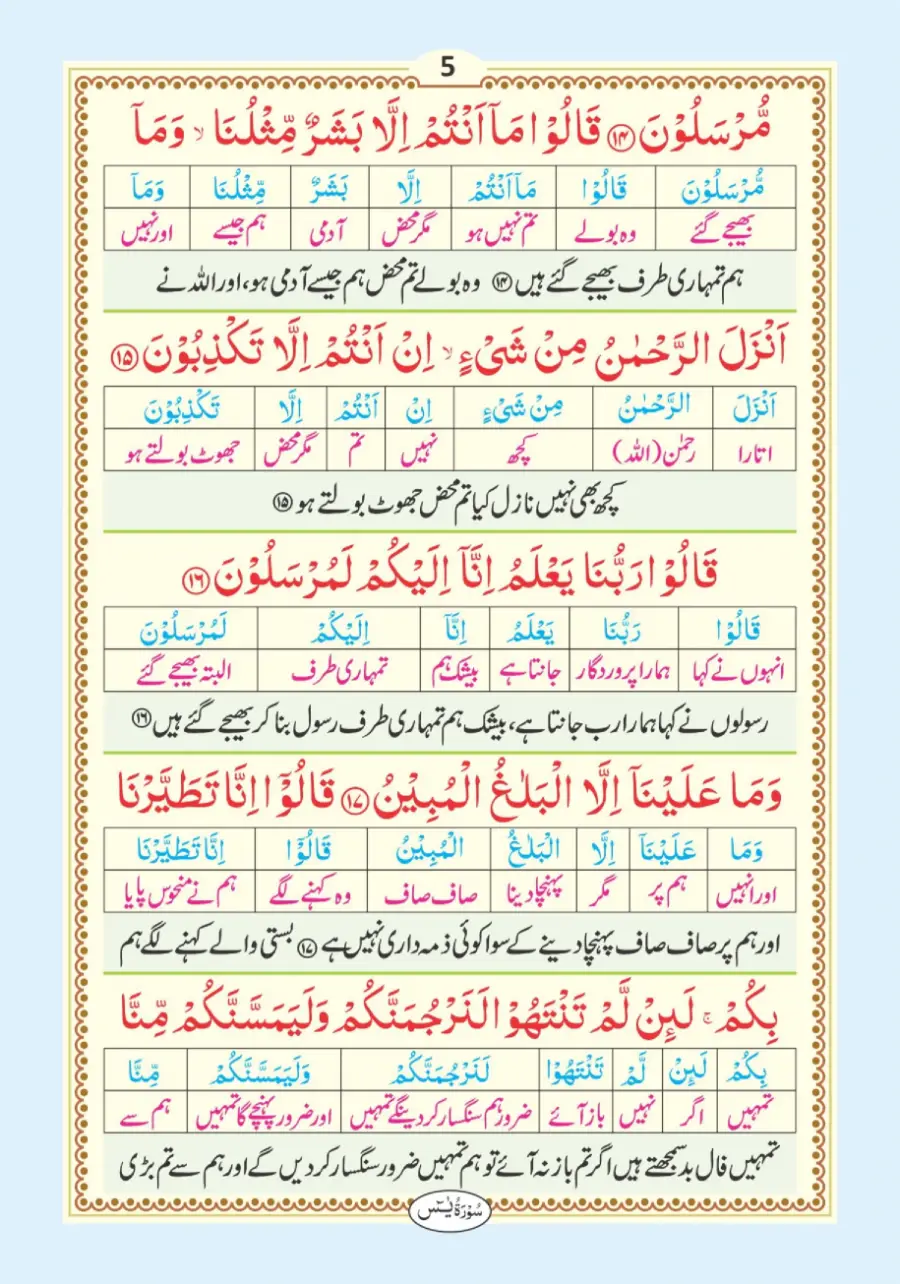 5
مُّرْسَلُوْنَ ﴿۱۴﴾ قَالُوْا مَاۤ اَنْتُمْ اِلَّا بَشَرٌ مِّثْلُنَا ۙ وَمَاۤ
مُّرْسَلُوْنَ قَالُوْا مَاۤ اَنْتُمْ اِلَّا بَشَرٌ مِّثْلُنَا وَمَاۤ
بھیجے گئے وہ بولے تم نہیں ہو مگر محض آدمی ہم جیسے اور نہیں
ہم تمہاری طرف بھیجے گئے ہیں ﴿۱۴﴾ وہ بولے تم محض ہم جیسے آدمی ہو، اور اللہ نے
اَنْزَلَ الرَّحْمٰنُ مِنْ شَیْءٍ ۙ اِنْ اَنْتُمْ اِلَّا تَكْذِبُوْنَ ﴿۱۵﴾
اَنْزَلَ الرَّحْمٰنُ مِنْ شَیْءٍ اِنْ اَنْتُمْ اِلَّا تَكْذِبُوْنَ
اتارا رحمٰن (اللہ) کچھ نہیں تم مگر محض جھوٹ بولتے ہو
کچھ بھی نہیں نازل کیا تم محض جھوٹ بولتے ہو ﴿۱۵﴾
قَالُوْا رَبُّنَا یَعْلَمُ اِنَّاۤ اِلَیْكُمْ لَمُرْسَلُوْنَ ﴿۱۶﴾
قَالُوْا رَبُّنَا یَعْلَمُ اِنَّاۤ اِلَیْكُمْ لَمُرْسَلُوْنَ
انہوں نے کہا ہمارا پروردگار جانتا ہے بیشک ہم تمہاری طرف البتہ بھیجے گئے
رسولوں نے کہا ہمارا رب جانتا ہے، بیشک ہم تمہاری طرف رسول بنا کر بھیجے گئے ہیں ﴿۱۶﴾
وَمَا عَلَیْنَاۤ اِلَّا الْبَلٰغُ الْمُبِیْنُ ﴿۱۷﴾ قَالُوْۤا اِنَّا تَطَیَّرْنَا
وَمَا عَلَیْنَاۤ اِلَّا الْبَلٰغُ الْمُبِیْنُ قَالُوْۤا اِنَّا تَطَیَّرْنَا
اور نہیں ہم پر مگر پہنچا دینا صاف صاف وہ کہنے لگے ہم نے منحوس پایا
اور ہم پر صاف صاف پہنچا دینے کے سوا کوئی ذمہ داری نہیں ہے ﴿۱۷﴾ بستی والے کہنے لگے ہم
بِكُمْ ۚ لَىِٕنْ لَّمْ تَنْتَهُوْا لَنَرْجُمَنَّكُمْ وَلَیَمَسَّنَّكُمْ مِّنَّا
بِكُمْ لَىِٕنْ لَّمْ تَنْتَهُوْا لَنَرْجُمَنَّكُمْ وَلَیَمَسَّنَّكُمْ مِّنَّا
تمہیں اگر نہیں باز آئے ضرور ہم سنگسار کر دینگے تمہیں اور ضرور پہنچے گا تمہیں ہم سے
تمہیں فال بد سمجھتے ہیں اگر تم باز نہ آئے تو ہم تمہیں ضرور سنگسار کر دیں گے اور ہم سے تم بڑی
سُوْرَةُ یٰسٓ